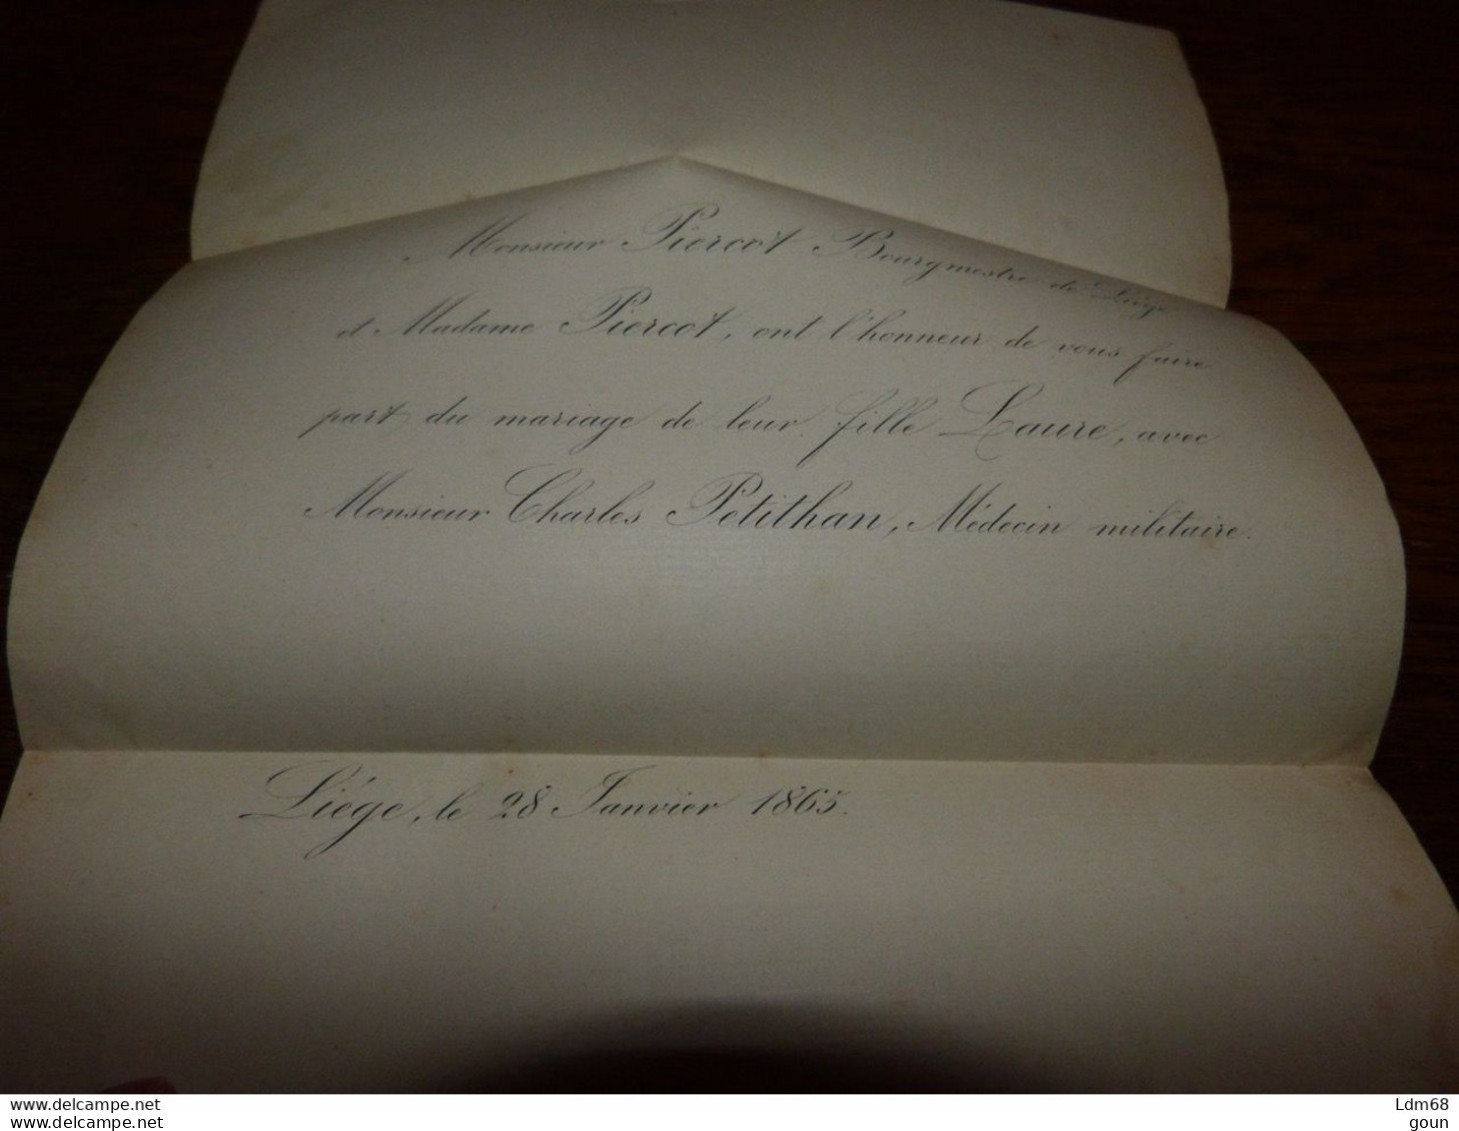 Monsieur Piercot Bourgmestre de Liège
et Madame Piercot, ont l'honneur de vous faire
part du mariage de leur fille Laure, avec
Monsieur Charles Petithan, Médecin militaire.
Liége, le 28 Janvier 1865.
www.delcampe.net
www.delcampe.net
Ldm68
goun